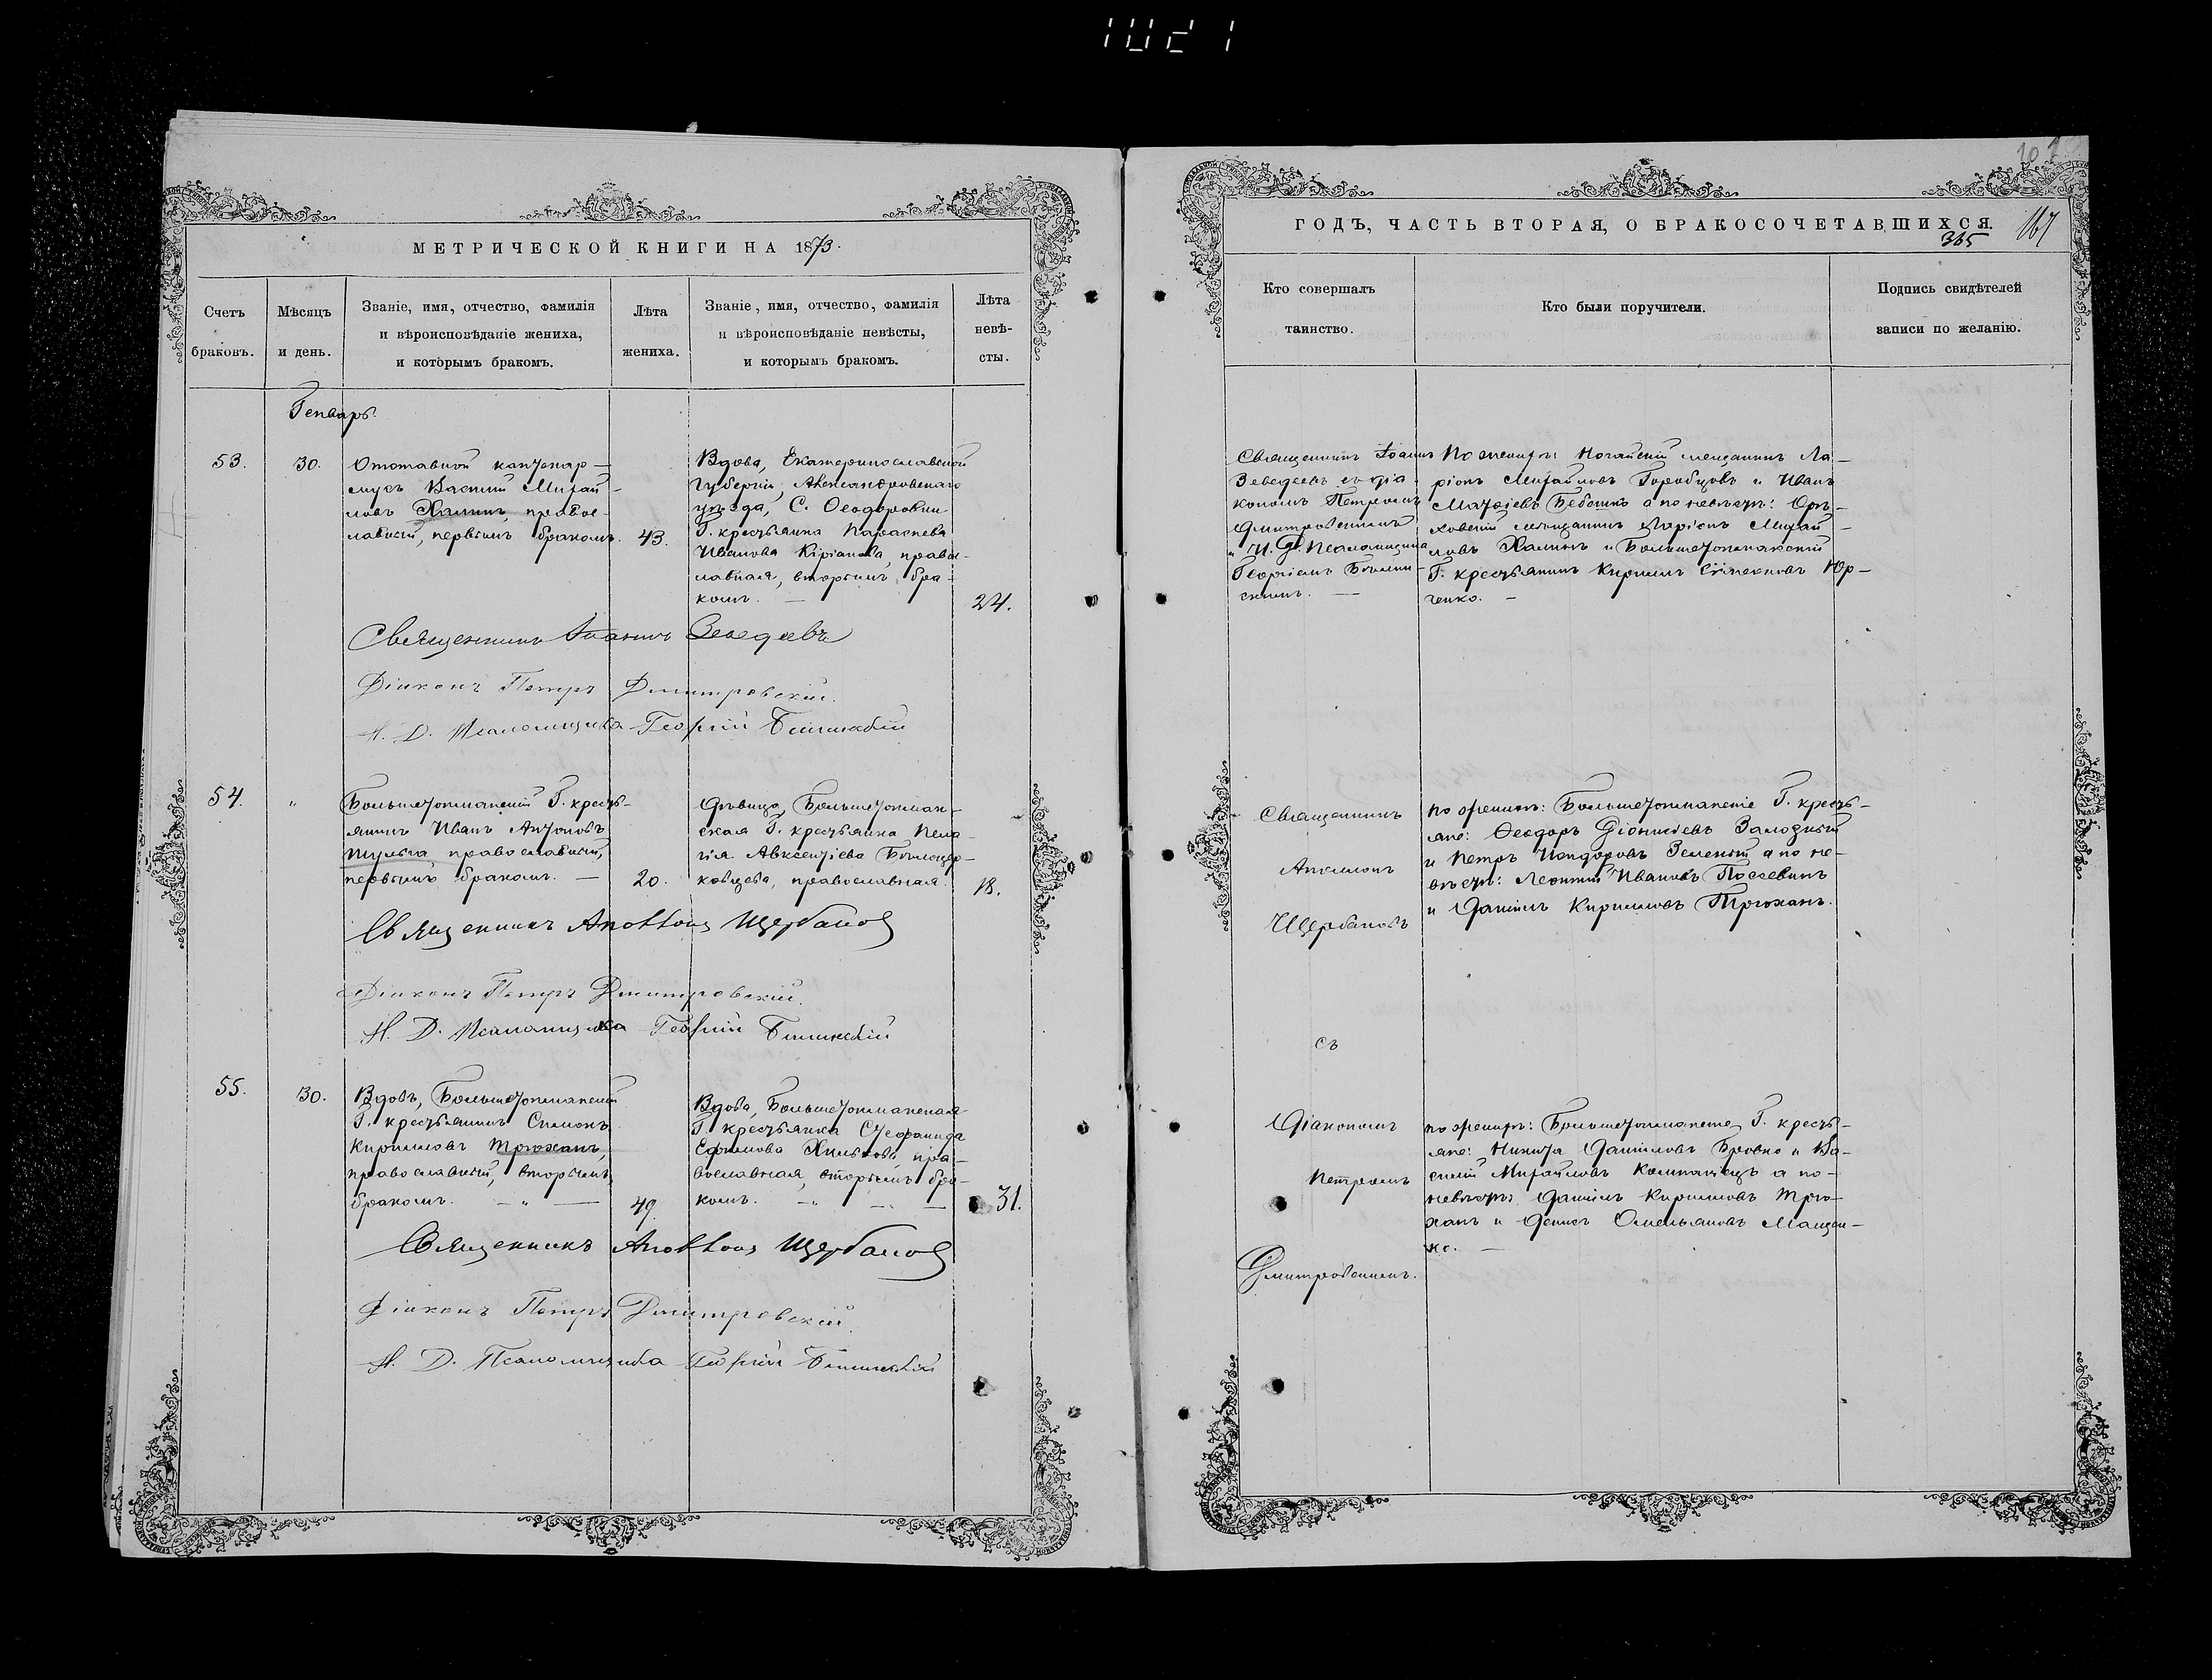 МЕТРИЧЕСКОЙ КНИГИ НА 1873.
Счетъ браковъ.
Мѣсяцъ и день.
Званіе, имя, отчество, фамилія
и вѣроисповѣданіе жениха,
и которымъ бракомъ.
Лѣта
жениха.
Званіе, имя, отчество, фамилія
и вѣроисповѣданіе невѣсты,
и которымъ бракомъ.
Лѣта
невѣ-
сты.
Генварь.
53.
30.
Отставной
Василій Михай-
ловъ Халинъ, правос-
лавный, первымъ бракомъ.
43.
Вдова, Екатеринославской
Губерніи, Александровскаго
уѣзда, С. Ѳеодоровки
Г. крестьянка Параскева
Иванова, правос-
лавная, вторымъ бра-
комъ. —
24.
Священникъ Іоаннъ Зеведеевъ
Діаконъ Петръ Дмитровскій.
И. Д. Псаломщика Георгій
54.
"
Большетокмакскій Г. кресть-
янинъ Иванъ Антоновъ
Шульга православный,
первымъ бракомъ. —
20.
Дѣвица, Большетокмак-
ская Г. крестьянка Пела-
гія Авксентіева Бѣлоцер-
ковцева, православная.
18.
Священникъ Аполлонъ Щербаковъ
Діаконъ Петръ Дмитровскій.
И. Д. Псаломщика Георгій
55.
30.
Вдовъ, Большетокмакскій
Г. крестьянинъ Симонъ
Кирилловъ Трюханъ,
православный, вторымъ
бракомъ. — " —
49.
Вдова, Большетокмакская
Г. крестьянка Стефанида
Ефимова пра-
вославная, вторымъ бра-
комъ. — " — " —
31.
Священникъ Аполлонъ Щербаковъ
Діаконъ Петръ Дмитровскій.
И. Д. Псаломщика Георгій
ГОДЪ, ЧАСТЬ ВТОРАЯ, О БРАКОСОЧЕТАВШИХСЯ.
365
167
Кто совершалъ
таинство.
Кто были поручители.
Подпись свидѣтелей
записи по желанію.
Священникъ Іоаннъ
Зеведеевъ съ діа-
кономъ Петромъ
Дмитровскимъ
и И. Д. Псаломщика
Георгіемъ
скимъ. —
По женихѣ: Ногайскій мещанинъ Ла-
ріонъ Михайловъ Горобцовъ и Иванъ
Матѳіевъ Бебешко а по невѣстѣ: Орѣ-
ховскій мещанинъ Ларіонъ Михай-
ловъ Халинъ и Большетокмакскій
Г. крестьянинъ Кириллъ Юр-
ченко. —
Священникъ
Аполлонъ
Щербаковъ
съ
Діакономъ
Петромъ
Дмитровскимъ.
по женихѣ: Большетокмакскіе Г. кресть-
яне: Ѳеодоръ Діонисіевъ Залозный
и Петръ Зеленый а по не-
вѣстѣ: Леонтій Ивановъ
и Даніилъ Кирилловъ Трюханъ.
по женихѣ: Большетокмакскіе Г. кресть-
яне: Никита Даніиловъ Бровко и Ва-
силій Михайловъ а по
невѣстѣ: Даніилъ Кирилловъ Трю-
ханъ и Денисъ Омельяновъ Мащен-
ко. —